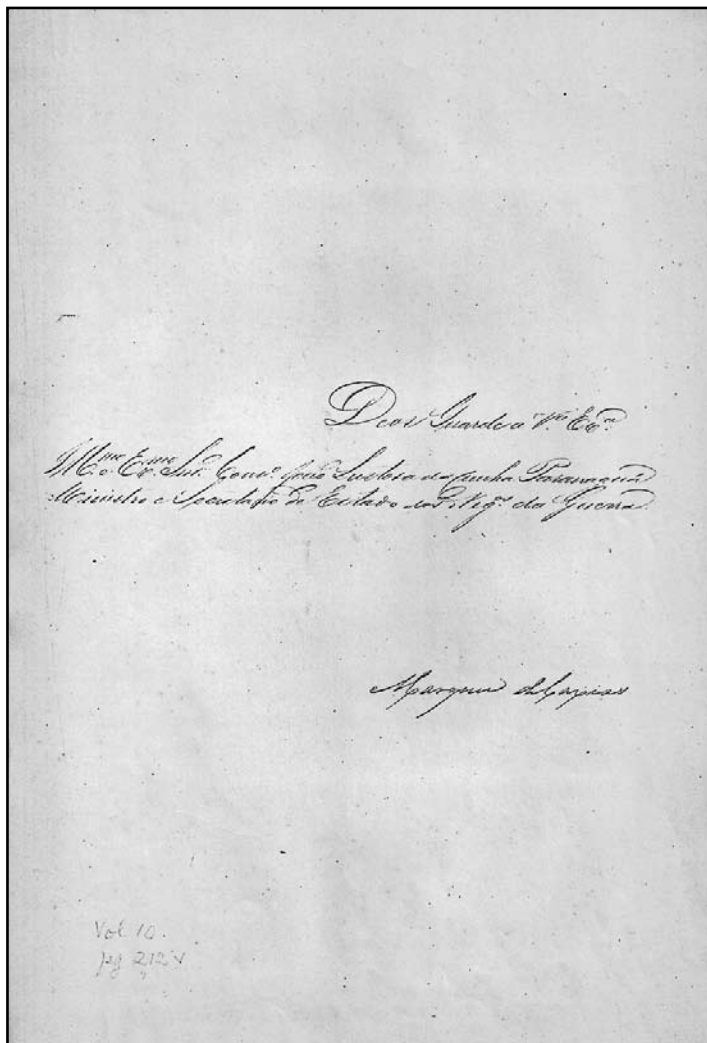 Deos Guarde a V.ª Ex.ª
Ill.mo e Ex.mo Snr. Cons.º João Lustosa da Cunha Paranaguá
Ministro e Secretario de Estado dos Neg.os da Guerra
Marquez de Caxias
Vol. 10.
pg 212 v